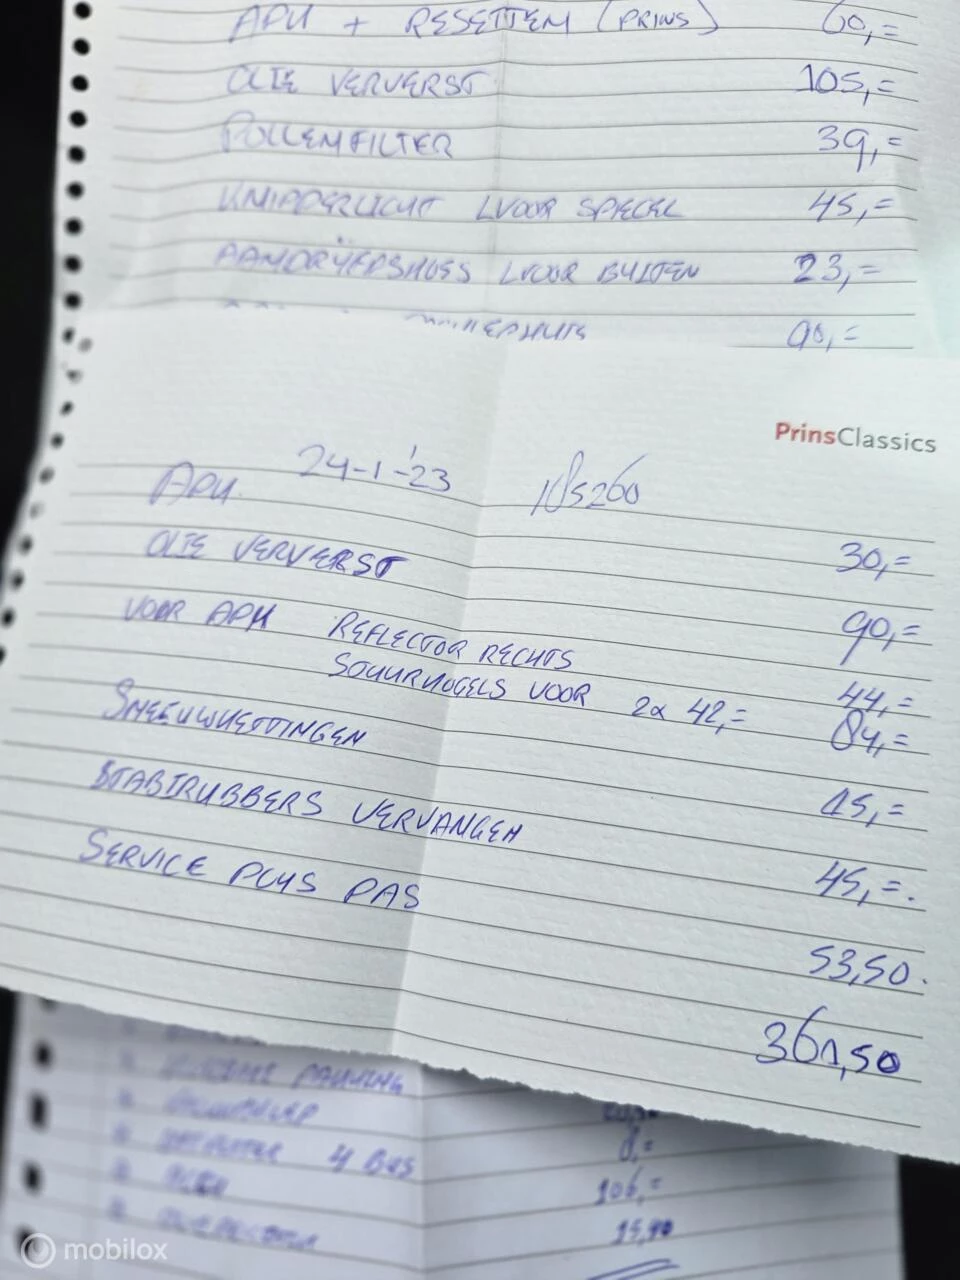 APK + RESETTEN (PRINS) 60,=
OLIE VERVERST 105,=
POLLENFILTER 39,=
KNIPPERLICHT LVOOR SPIEGEL 45,=
AANDRIJFASHOES LVOOR BUITEN 23,=
90,=
PrinsClassics
24-1-'23
APK 30,=
OLIE VERVERST 90,=
VOOR APK REFLECTOR RECHTS 44,=
SCHUURNOGELS VOOR 2x 42,= 84,=
SNEEUWKETTINGEN 15,=
STABIRUBBERS VERVANGEN 45,=.
SERVICE PLUS PAS 53,50.
361,50
PAKKING
4 BUS 8,=
106,=
15,90
mobilox